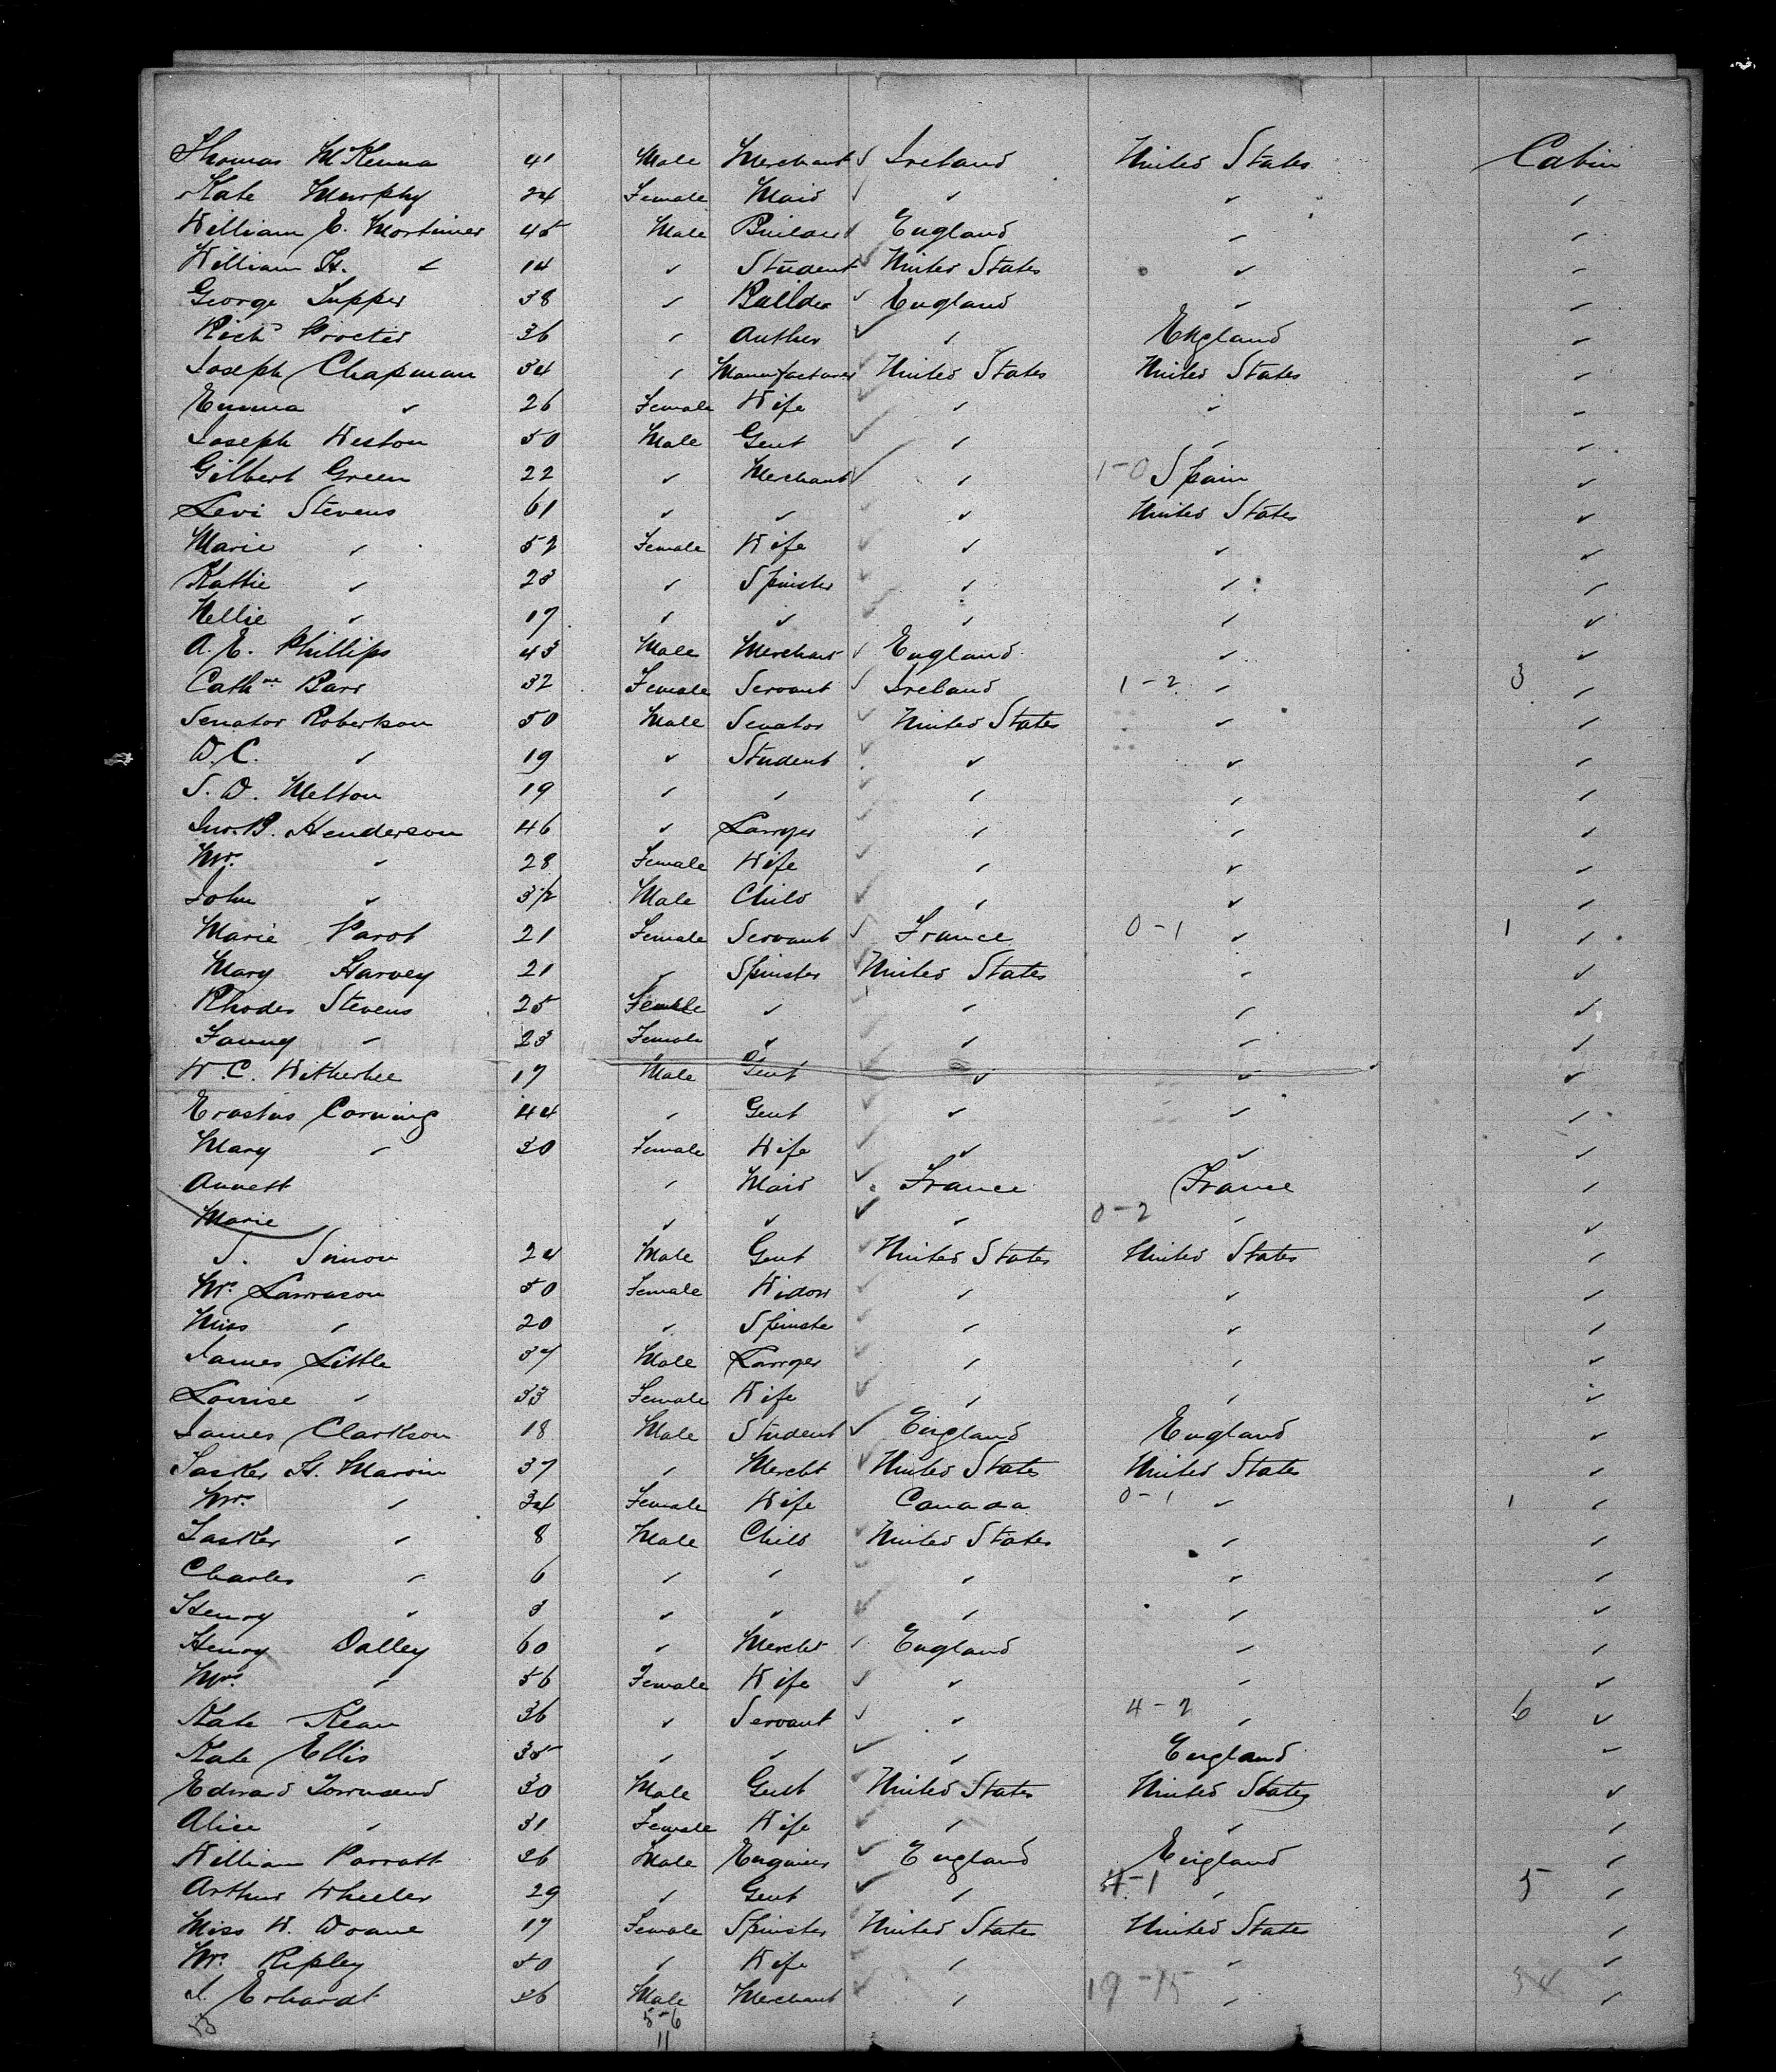 Thomas McKenna 41 Male Merchant ✓ Ireland United States Cabin
Kate Murphy 24 Female Maid ✓ ✓ ✓ ✓
William E. Mortimer 45 Male Builder ✓ England ✓ ✓
William H. ✓ 14 ✓ Student ✓ United States ✓ ✓
George Tupper 38 ✓ Builder ✓ England ✓ ✓
Richd Procter 36 ✓ Auther ✓ ✓ England ✓
Joseph Chapman 34 ✓ Manufacturer United States United States ✓
Emma ✓ 26 Female Wife ✓ ✓ ✓ ✓
Joseph Weston 50 Male Gent ✓ ✓ ✓ ✓
Gilbert Green 22 ✓ Merchant ✓ ✓ 1-0 Spain ✓
Levi Stevens 61 ✓ ✓ ✓ ✓ United States ✓
Marie ✓ 52 Female Wife ✓ ✓ ✓ ✓
Kattie ✓ 23 ✓ Spinster ✓ ✓ ✓ ✓
Nellie ✓ 17 ✓ ✓ ✓ ✓ ✓ ✓
A. E. Phillips 43 Male Merchant ✓ England ✓ ✓
Cathne Barr 32 Female Servant ✓ Ireland 1-2 ✓ 3 ✓
Senator Robertson 50 Male Senator ✓ United States ✓ ✓
W. C. ✓ 19 ✓ Student ✓ ✓ ✓ ✓
S. W. Melton 19 ✓ ✓ ✓ ✓ ✓ ✓
Jno. B. Henderson 46 ✓ Lawyer ✓ ✓ ✓ ✓
Mrs. ✓ 28 Female Wife ✓ ✓ ✓ ✓
John ✓ 3/12 Male Child ✓ ✓ ✓ ✓
Marie Parot 21 Female Servant ✓ France 0-1 ✓ 1 ✓
Mary Harvey 21 ✓ Spinster ✓ United States ✓ ✓
Rhodes Stevens 25 Female ✓ ✓ ✓ ✓ ✓
Fanny ✓ 23 Female ✓ ✓ ✓ ✓ ✓
W. C. Witherbee 17 Male Gent ✓ ✓ ✓ ✓
Erastus Corning 44 ✓ Gent ✓ ✓ ✓ ✓
Mary ✓ 30 Female Wife ✓ ✓ ✓ ✓
Annett ✓ Maid ✓ France France ✓
Marie ✓ ✓ ✓ ✓ 0-2 ✓ ✓
S. Simon 24 Male Gent ✓ United States United States ✓
Mrs. Lawrason 50 Female Widow ✓ ✓ ✓ ✓
Miss ✓ 20 ✓ Spinster ✓ ✓ ✓ ✓
James Little 37 Male Lawyer ✓ ✓ ✓ ✓
Louise ✓ 33 Female Wife ✓ ✓ ✓ ✓
James Clarkson 18 Male Student ✓ England England ✓
Tasker H. Marvin 37 ✓ Mercht ✓ United States United States ✓
Mrs. ✓ 34 Female Wife Canada 0-1 ✓ 1 ✓
Tasker ✓ 8 Male Child ✓ United States ✓ ✓
Charles ✓ 6 ✓ ✓ ✓ ✓ ✓ ✓
Henry ✓ 3 ✓ ✓ ✓ ✓ ✓ ✓
Henry Dalley 60 ✓ Mercht ✓ England ✓ ✓
Mrs. ✓ 56 Female Wife ✓ ✓ ✓ ✓
Kate Kean 36 ✓ Servant ✓ ✓ 4-2 ✓ 6 ✓
Kate Ellis 35 ✓ ✓ ✓ ✓ England ✓
Edward Townsend 30 Male Gent ✓ United States United States ✓
Alice ✓ 31 Female Wife ✓ ✓ ✓ ✓
William Parratt 26 Male Engineer ✓ England England ✓
Arthur Wheeler 29 ✓ Gent ✓ ✓ 4-1 ✓ 5 ✓
Miss W. Doane 17 Female Spinster ✓ United States United States ✓
Mrs. Ripley 50 ✓ Wife ✓ ✓ ✓ ✓
J. Erhardt 36 Male Merchant ✓ ✓ 19-15 ✓ 34 ✓
53 5-6
11